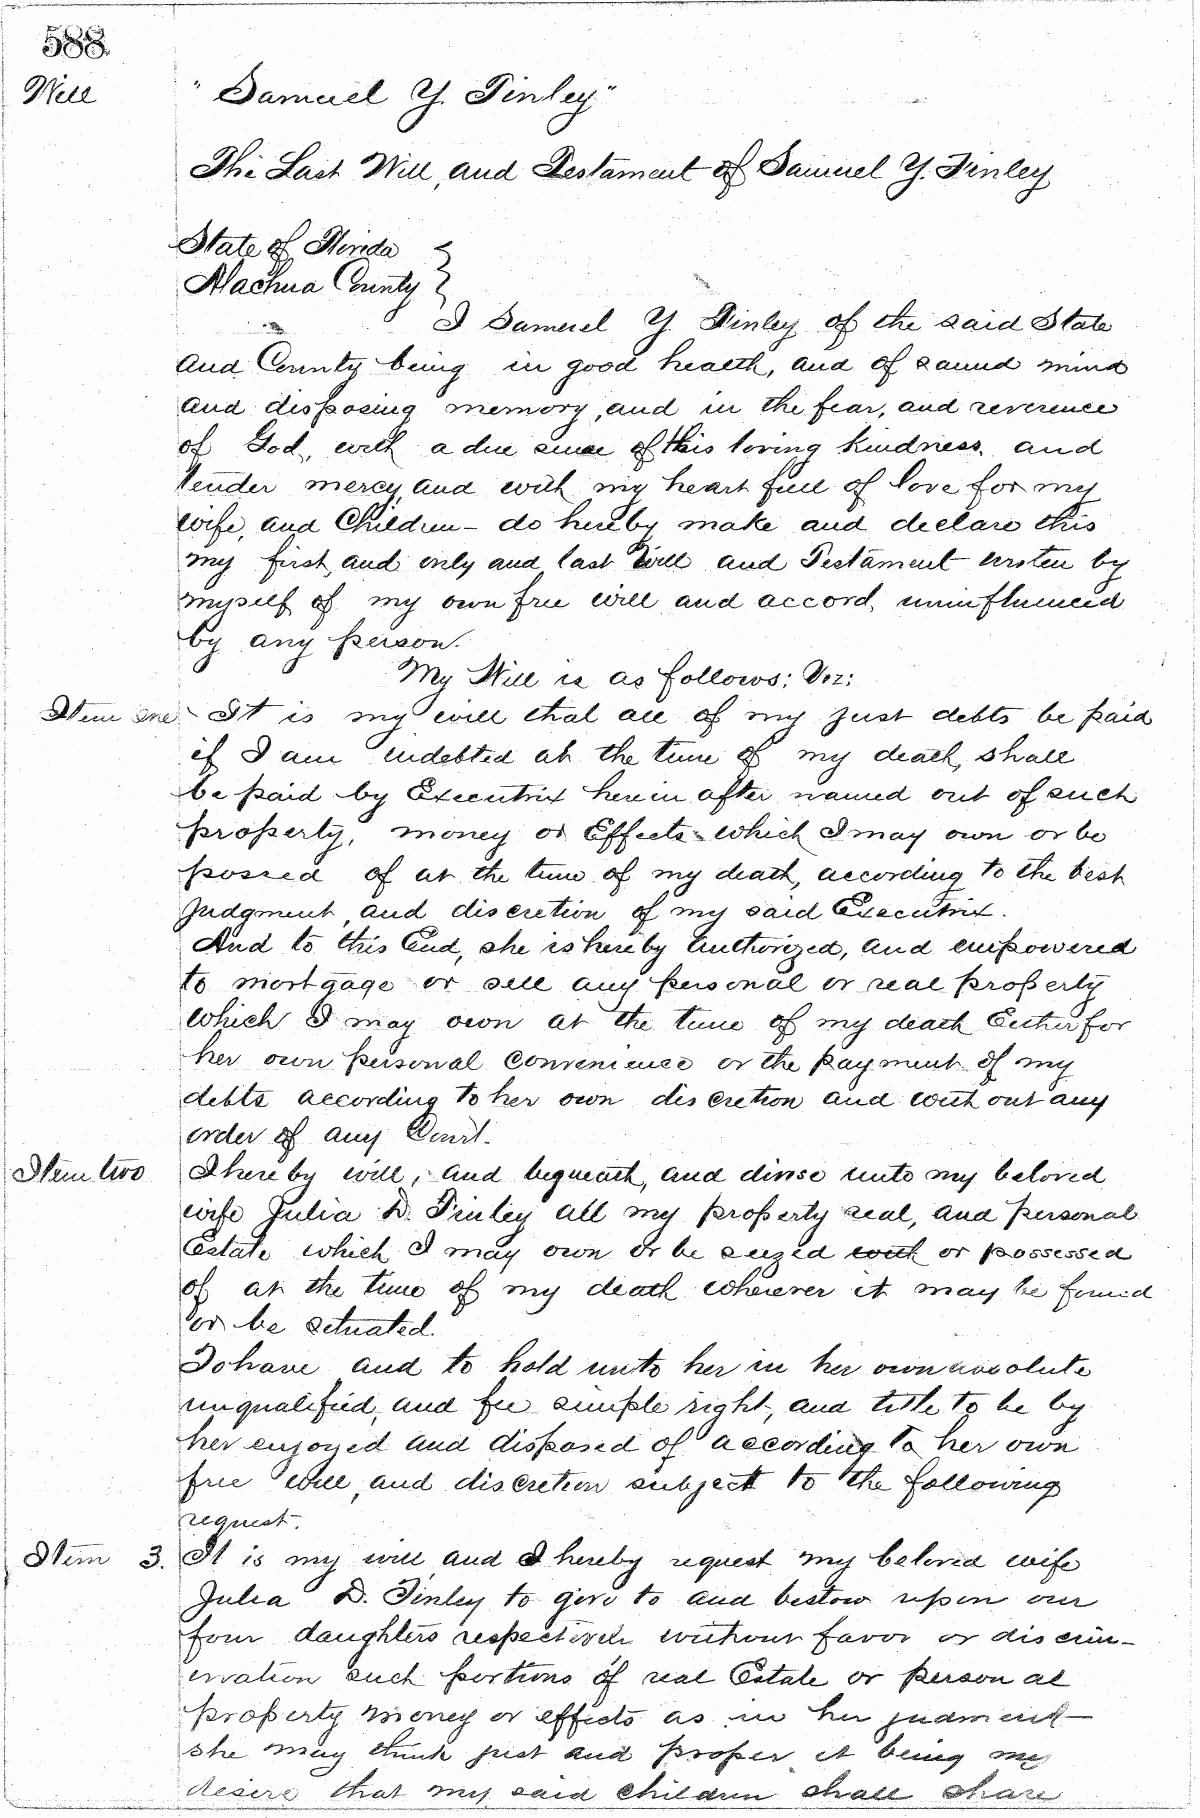 588.
Will
"Samuel Y. Finley"
The Last Will, and Testament of Samuel Y. Finley
State of Florida
Alachua County
I Samuel Y. Finley of the said State
and County being in good health, and of sound mind
and disposing memory, and in the fear, and reverence
of God, with a due sense of His loving kindness, and
tender mercy, and with my heart full of love for my
wife, and Children - do hereby make and declare this
my first, and only and last Will and Testament writen by
myself of my own free will and accord, uninfluenced
by any person.
My Will is as follows; Viz;
Item one. It is my will that all of my just debts be paid
if I am indebted at the time of my death, shall
be paid by Executrix herein after named out of such
property, money or Effects which I may own or be
possed of at the time of my death, according to the best
Judgment, and discretion of my said Executrix.
And to this End, she is hereby authorized, and empowered
to mortgage or sell any personal or real property
which I may own at the time of my death Either for
her own personal convenience or the payment of my
debts according to her own discretion and without any
order of any Court.
Item two I hereby will, and bequeath, and divise unto my beloved
wife Julia D. Finley all my property real, and personal
Estate which I may own or be seized with or possessed
of at the time of my death wherever it may be found
or be situated.
To have and to hold unto her in her own absolute
unqualified, and fee simple right, and title to be by
her enjoyed and disposed of according to her own
free will, and discretion subject to the following
request.
Item 3. It is my will and I hereby request my beloved wife
Julia D. Finley to give to and bestow upon our
four daughters respectively without favor or discrim-
ination such portions of real Estate or personal
property money or effects as in her judment
she may think just and proper it being my
desire that my said children shall share